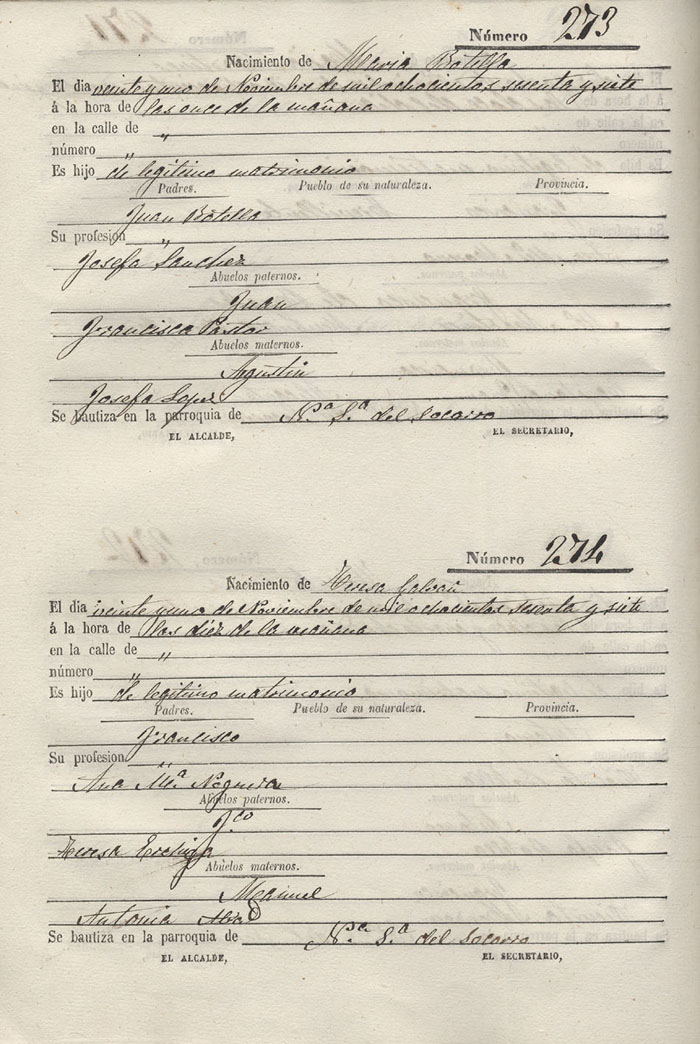 Número 273
Nacimiento de Maria Botella
El dia veinte y uno de Noviembre de mil ochocientos sesenta y siete
á la hora de las once de la mañana
en la calle de "
número "
Es hijo de legitimo matrimonio
Padres. Pueblo de su naturaleza. Provincia.
Juan Botella
Su profesion "
Josefa Sanchez
Abuelos paternos.
Juan
Francisca Pastor
Abuelos maternos.
Agustin
Josefa Lopez
Se bautiza en la parroquia de N.ª S.ª del Socorro
EL ALCALDE, EL SECRETARIO,
Número 274
Nacimiento de Teresa Galvañ
El dia veinte y uno de Noviembre de mil ochocientos sesenta y siete
á la hora de las diez de la mañana
en la calle de "
número "
Es hijo de legitimo matrimonio
Padres. Pueblo de su naturaleza. Provincia.
Francisco
Su profesion "
Ana M.ª Noguera
Abuelos paternos.
F.co
Teresa
Abuelos maternos.
Manuel
Antonia Abad
Se bautiza en la parroquia de N.ª S.ª del Socorro
EL ALCALDE, EL SECRETARIO,